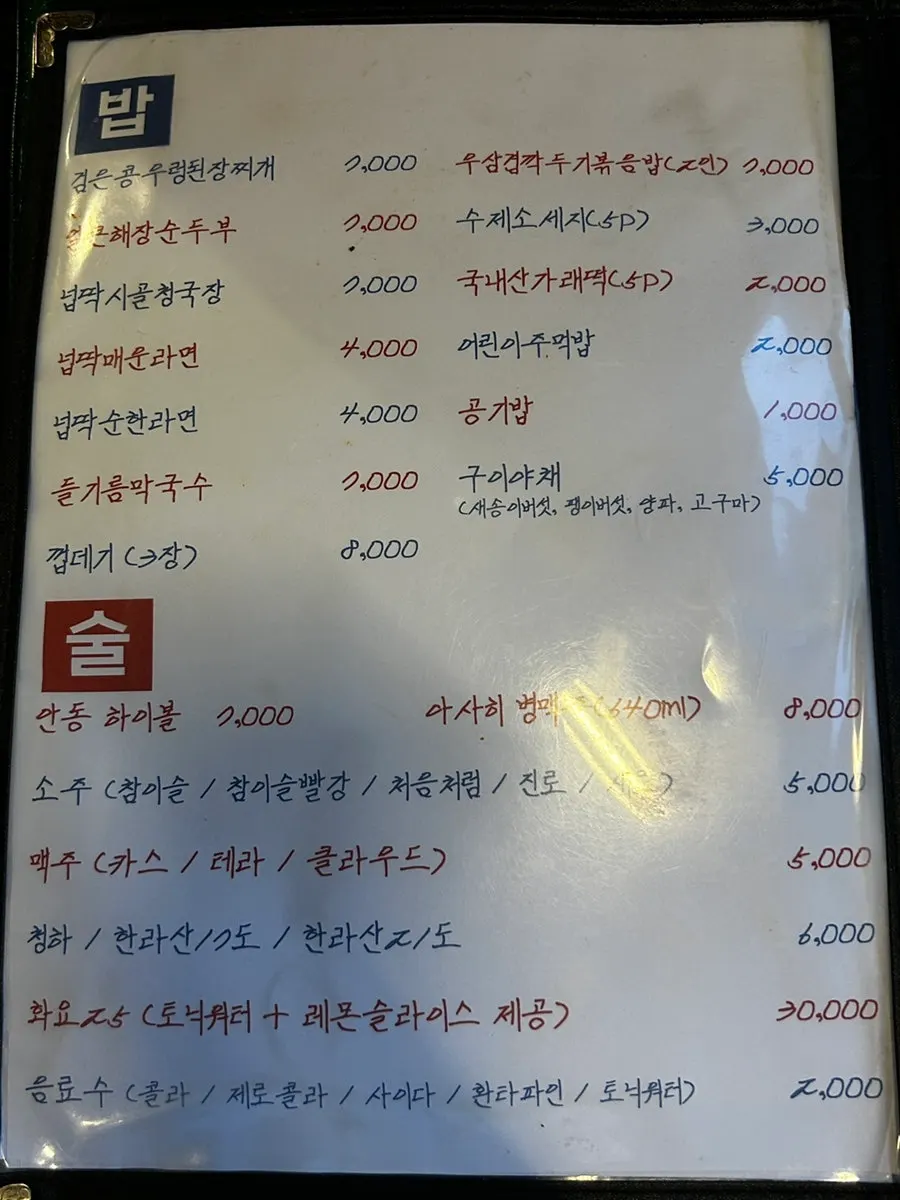 밥
검은콩우렁된장찌개 7,000 우삼겹깍두기볶음밥(2인) 7,000
얼큰해장순두부 7,000 수제소세지(5P) 3,000
넙딱시골청국장 7,000 국내산가래떡(5P) 2,000
넙딱매운라면 4,000 어린이주먹밥 2,000
넙딱순한라면 4,000 공기밥 1,000
들기름막국수 7,000 구이야채 5,000
(새송이버섯, 팽이버섯, 양파, 고구마)
껍데기(3장) 8,000
술
안동 하이볼 7,000 아사히 병맥주(640ml) 8,000
소주 (참이슬 / 참이슬빨강 / 처음처럼 / 진로 / ) 5,000
맥주 (카스 / 테라 / 클라우드) 5,000
청하 / 한라산17도 / 한라산21도 6,000
화요25 (토닉워터 + 레몬슬라이스 제공) 30,000
음료수 (콜라 / 제로콜라 / 사이다 / 환타파인 / 토닉워터) 2,000